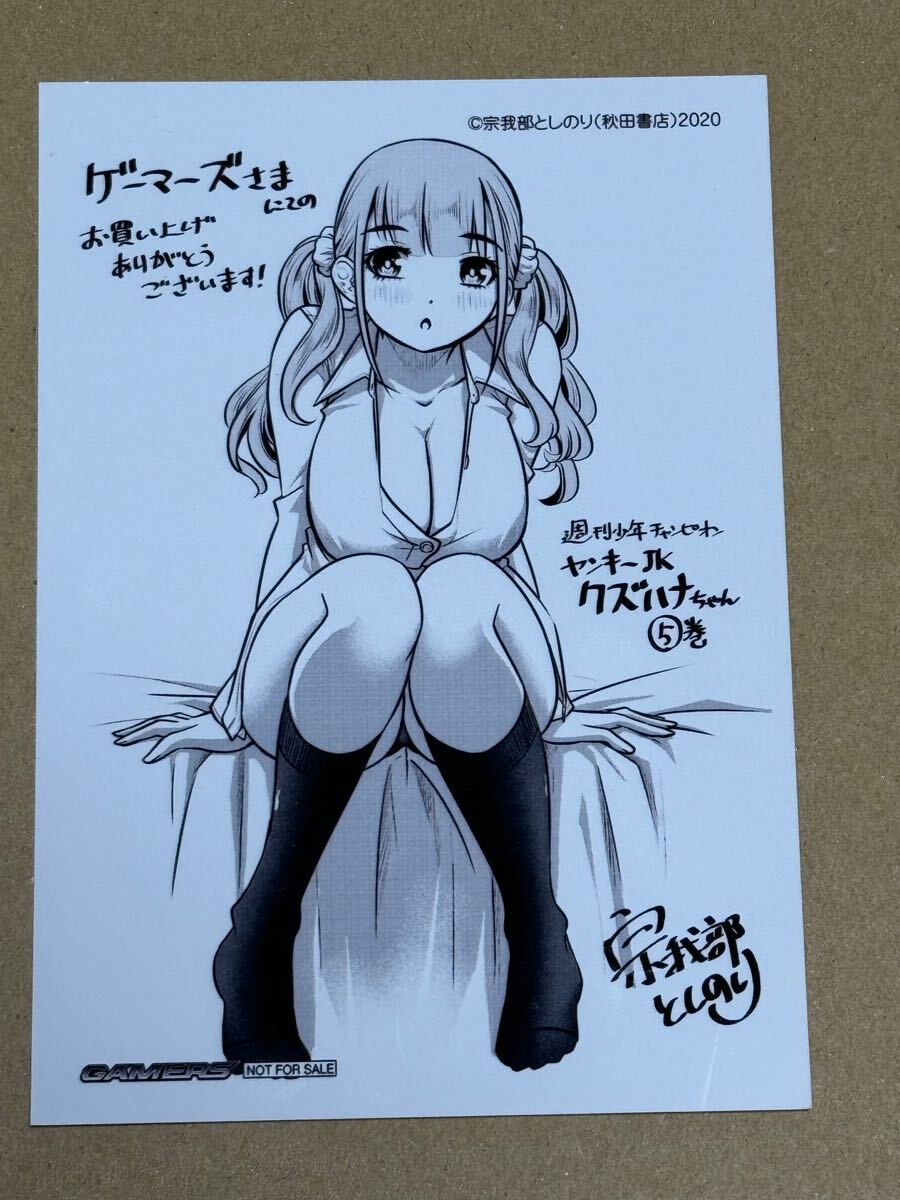 ©宗我部としのり(秋田書店)2020
ゲーマーズさま
にての
お買い上げ
ありがとう
ございます!
週刊少年チャンピオン
ヤンキーJK
クズハナちゃん
⑤巻
宗我部
としのり
GAMERS NOT FOR SALE